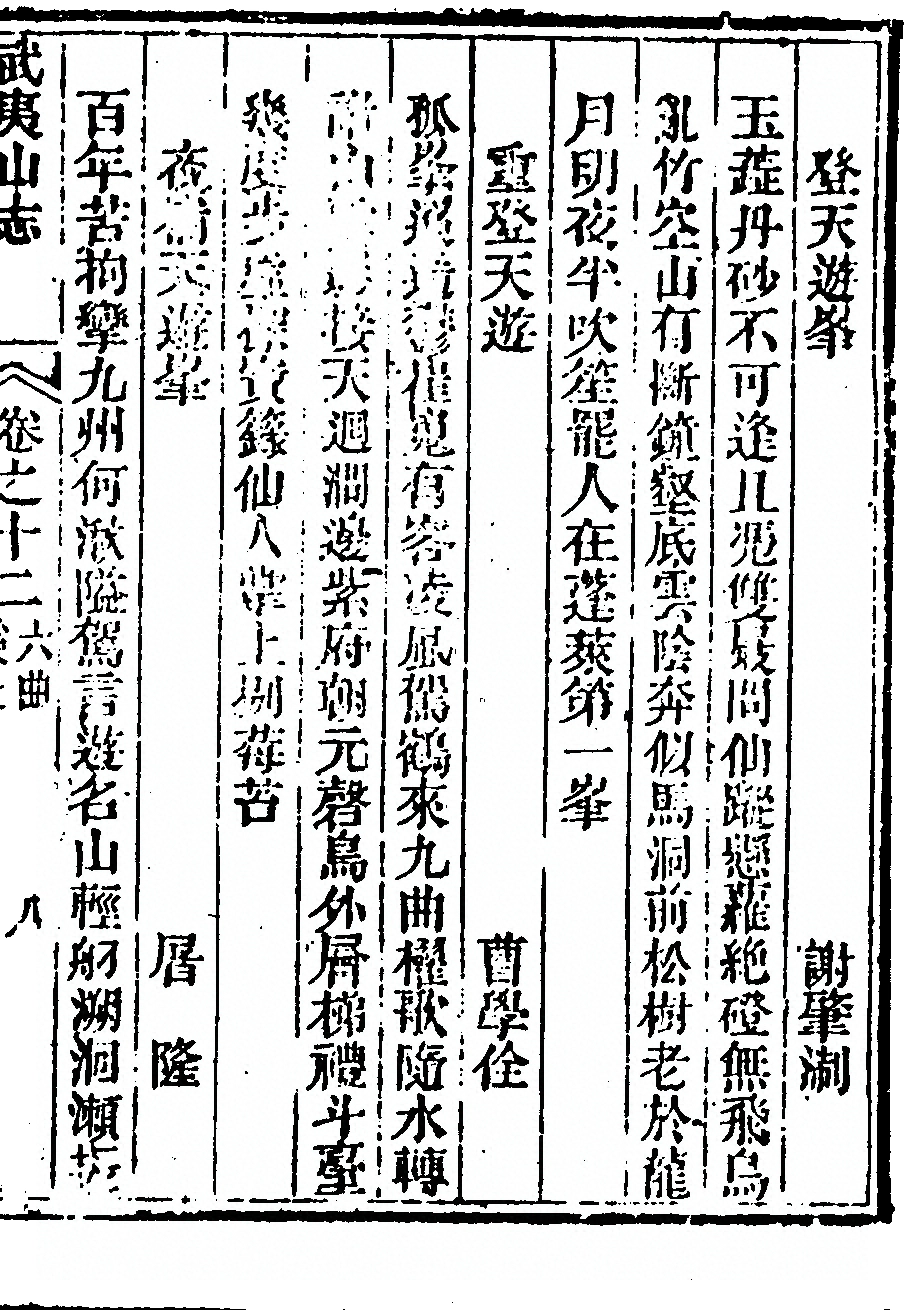 登天遊峯　謝肇淛
玉蕋丹砂不可逢几凭雙最問仙蹤懸蘿絶磴無飛鳥
亂竹空山有斷鐘壑底雲陰奔似馬洞前松樹老於龍
月明夜半吹笙罷人在蓬萊第一峯
重登天遊　曹學佺
孤峯崔嵬有客凌風駕鶴來九曲櫂歌隨水轉
接天迴澗邊紫府朝元磬鳥外層梯禮斗臺
幾度籙仙人掌上剔莓苔
夜宿天遊峯　屠隆
百年苦拘攣九州何湫隘駕言遊名山輕舠溯洄瀨
武夷山志　卷之十二　六曲　八